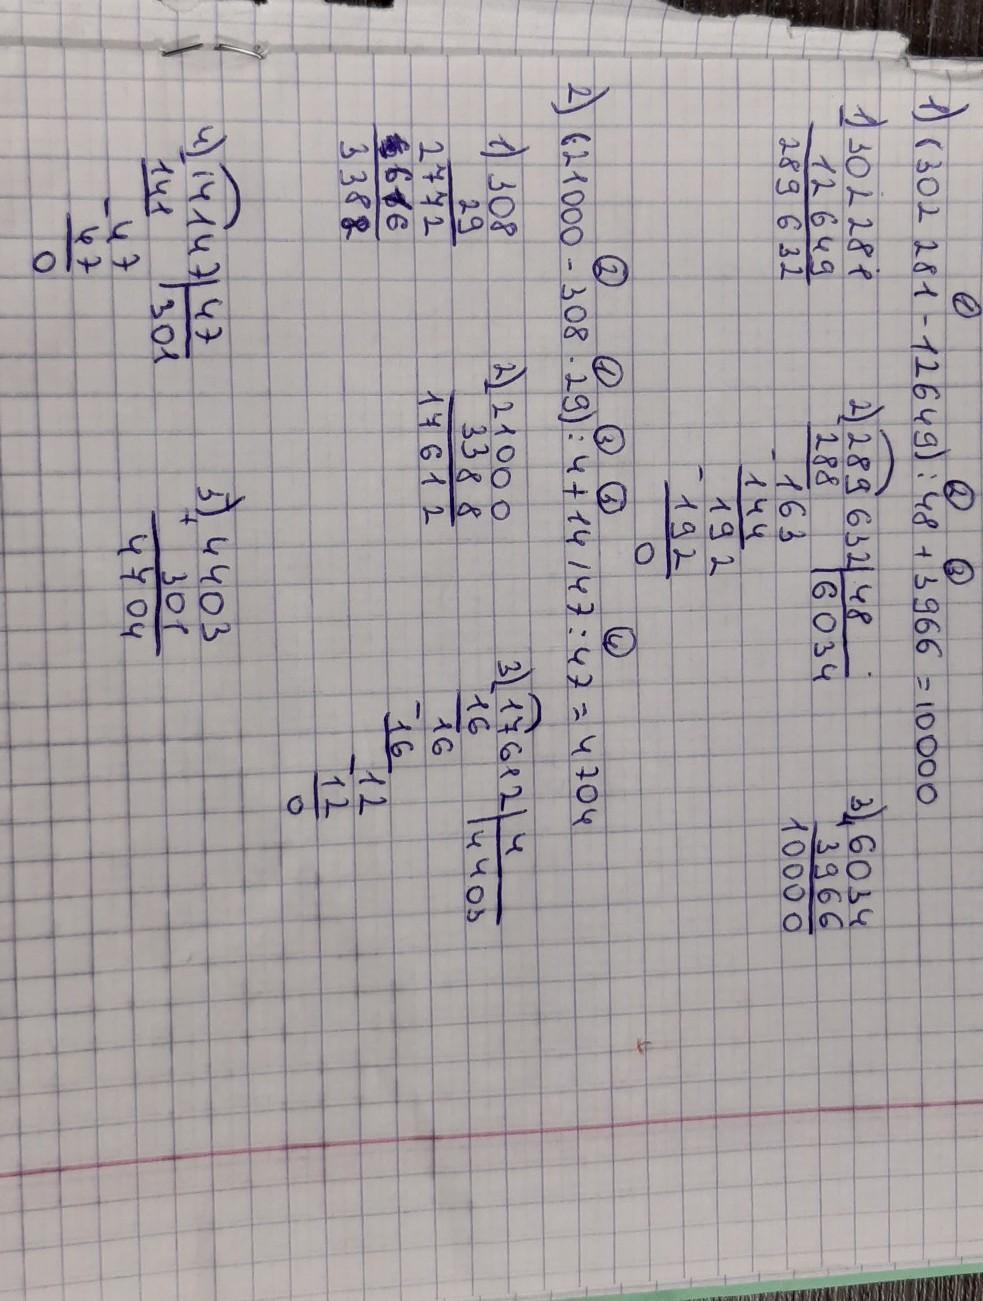 1) (302 281 - 12649) : 48 + 3966 = 10000
1) 302 281
12 649
289 632
2) 289 632 | 48
288 | 6034
- 163
144
- 192
192
0
3) + 6034
3966
10000
2) (21000 - 308 · 29) : 4 + 14147 : 47 = 4704
1) 308
29
2772
616
3388
2) 21000
3388
17612
3) 17612 | 4
- 16 | 4403
16
- 16
- 12
12
0
4) 14147 | 47
141 | 301
- 47
47
0
5) + 4403
301
4704